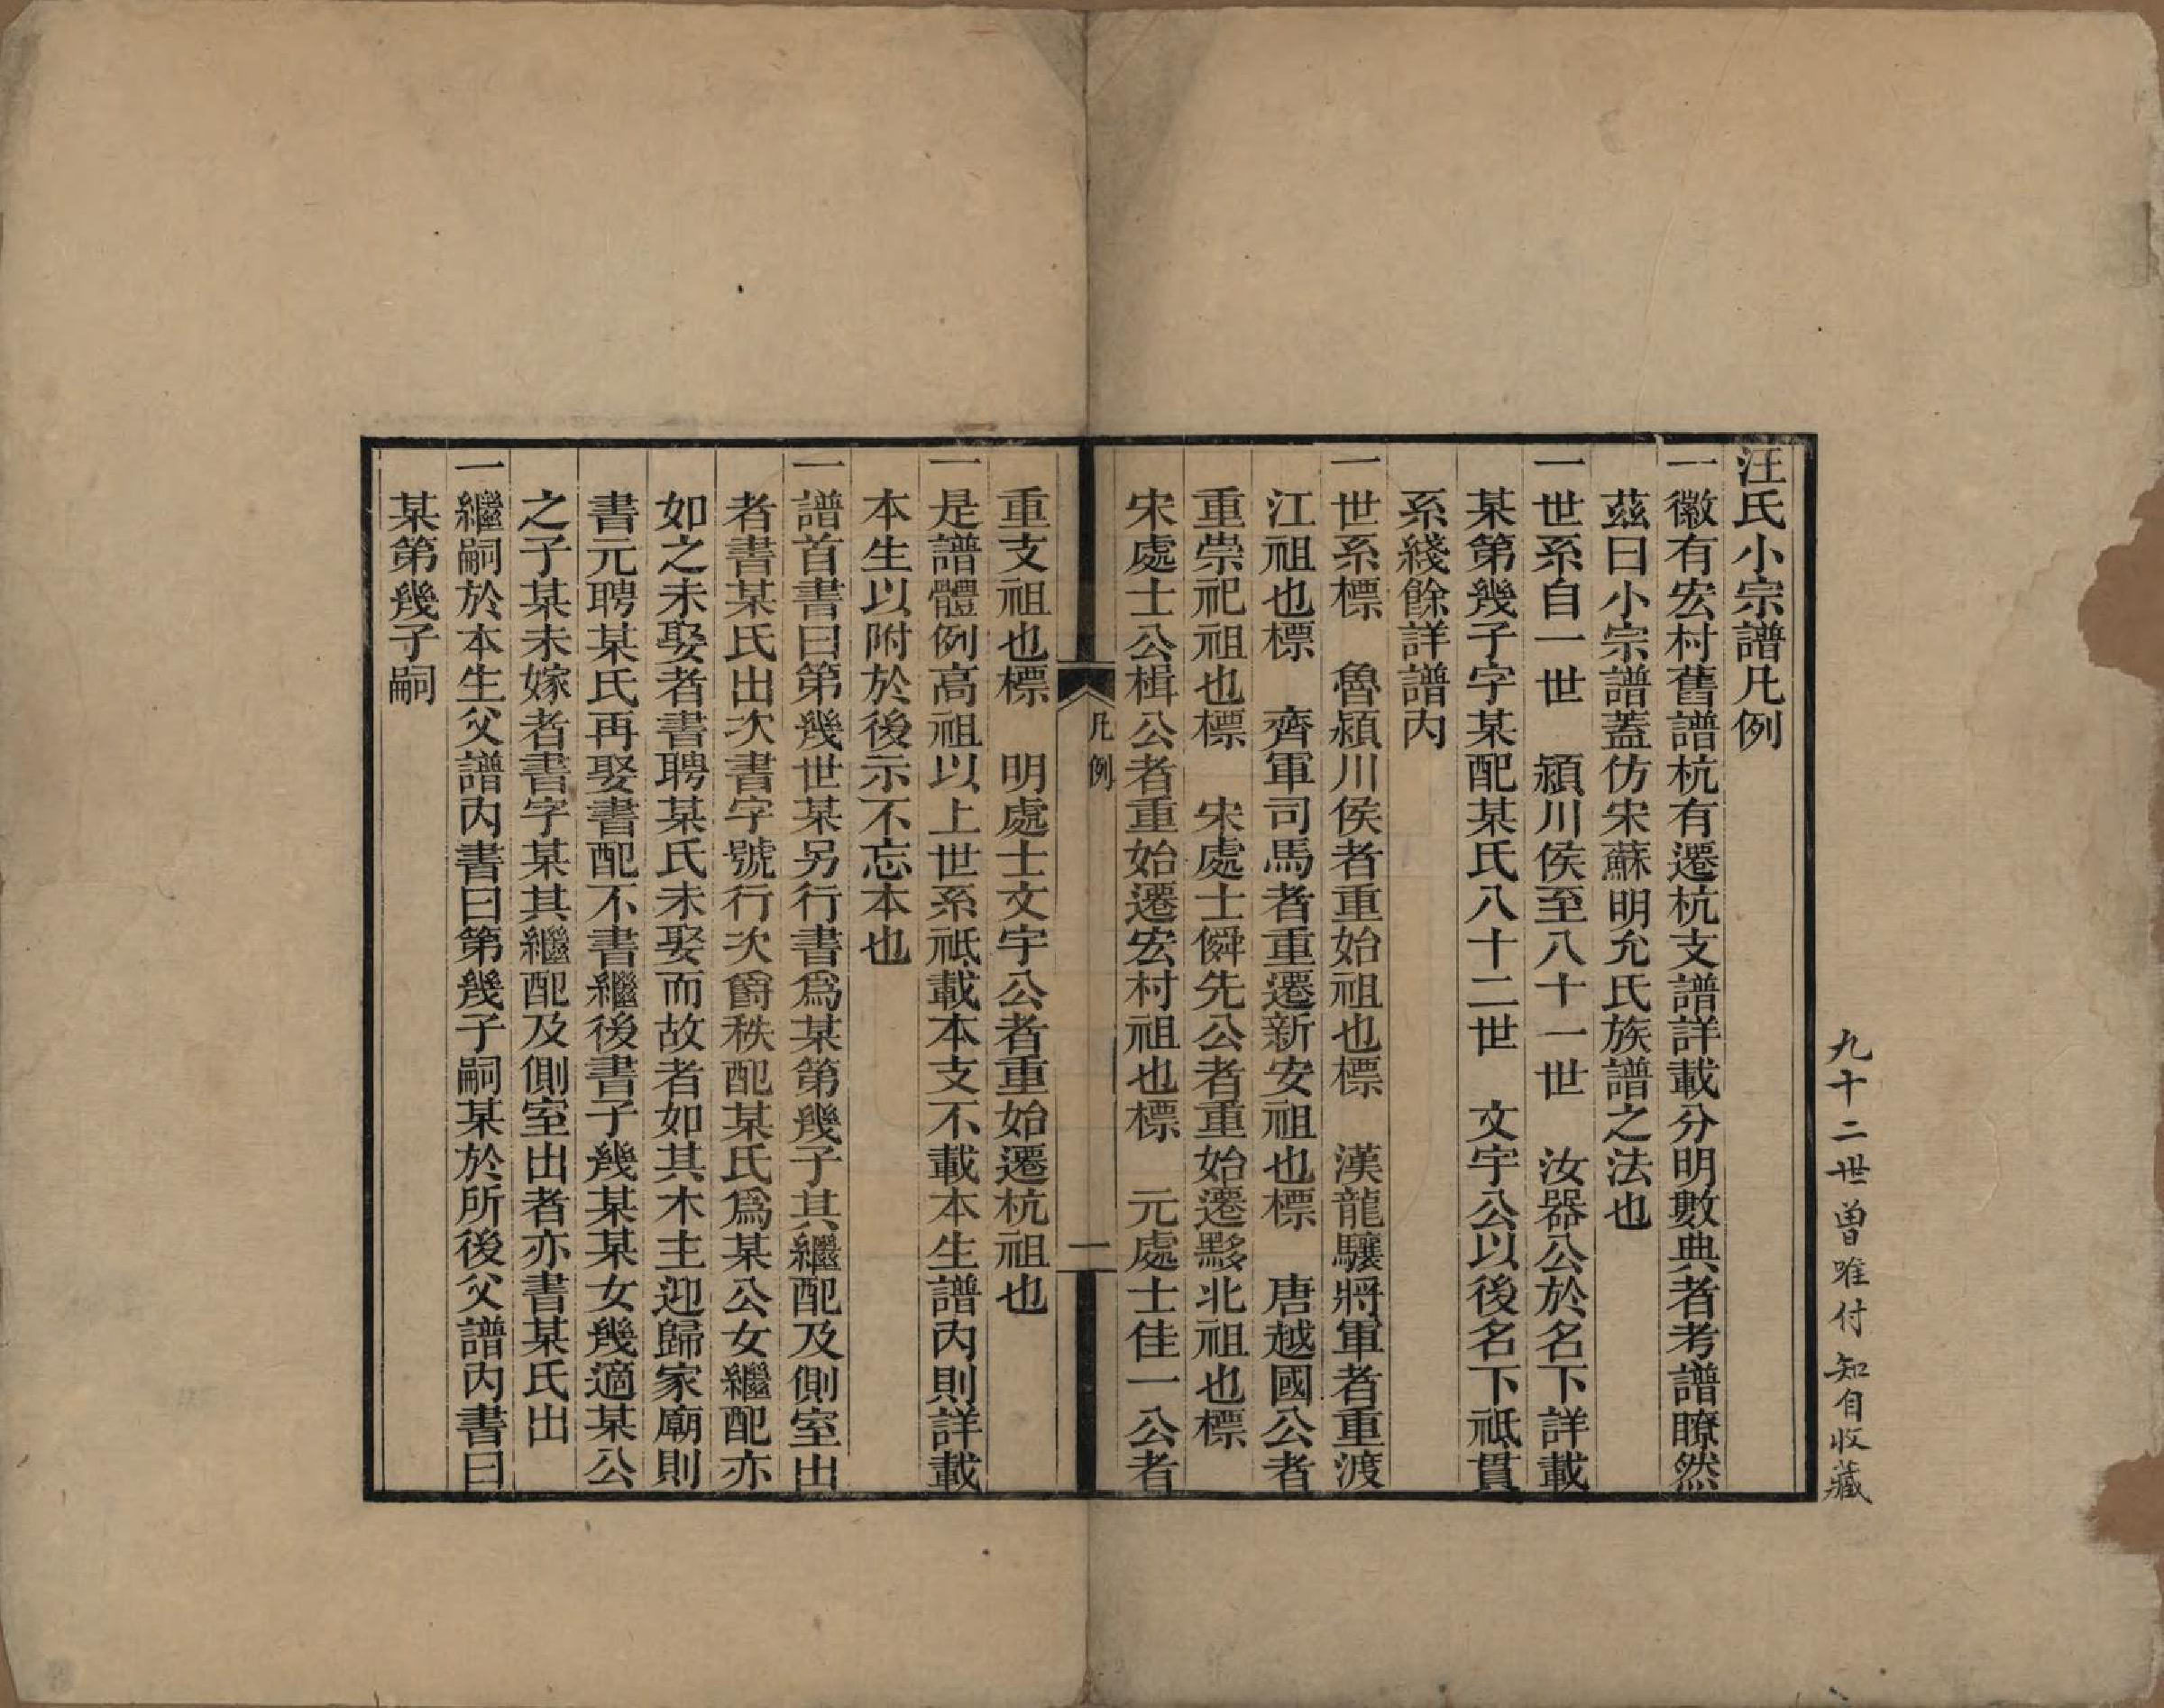 汪氏小宗譜凡例
一徽有宏村舊譜杭有遷杭支譜詳載分明數典者考譜瞭然
茲曰小宗譜蓋仿宋蘇明允氏族譜之法也
一世系自一世　潁川侯至八十一世　汝器公於名下詳載
某第幾子字某配某氏八十二世　文宇公以後名下祇貫
系綫餘詳譜內
一世系標　魯潁川侯者重始祖也標　漢龍驤將軍者重渡
江祖也標　齊軍司馬者重遷新安祖也標　唐越國公者
重崇祀祖也標　宋處士僢先公者重始遷黟北祖也標
宋處士公楫公者重始遷宏村祖也標　元處士佳一公者
凡例
一
重支祖也標　明處士文宇公者重始遷杭祖也
一是譜體例高祖以上世系祇載本支不載本生譜內則詳載
本生以附於後示不忘本也
一譜首書曰第幾世某另行書爲某第幾子其繼配及側室出
者書某氏出次書字號行次爵秩配某氏爲某公女繼配亦
如之未娶者書聘某氏未娶而故者如其木主迎歸家廟則
書元聘某氏再娶書配不書繼後書子幾某某女幾適某公
之子某未嫁者書字某其繼配及側室出者亦書某氏出
一繼嗣於本生父譜內書曰第幾子嗣某於所後父譜內書曰
某第幾子嗣
九十二世曾唯付知自收藏